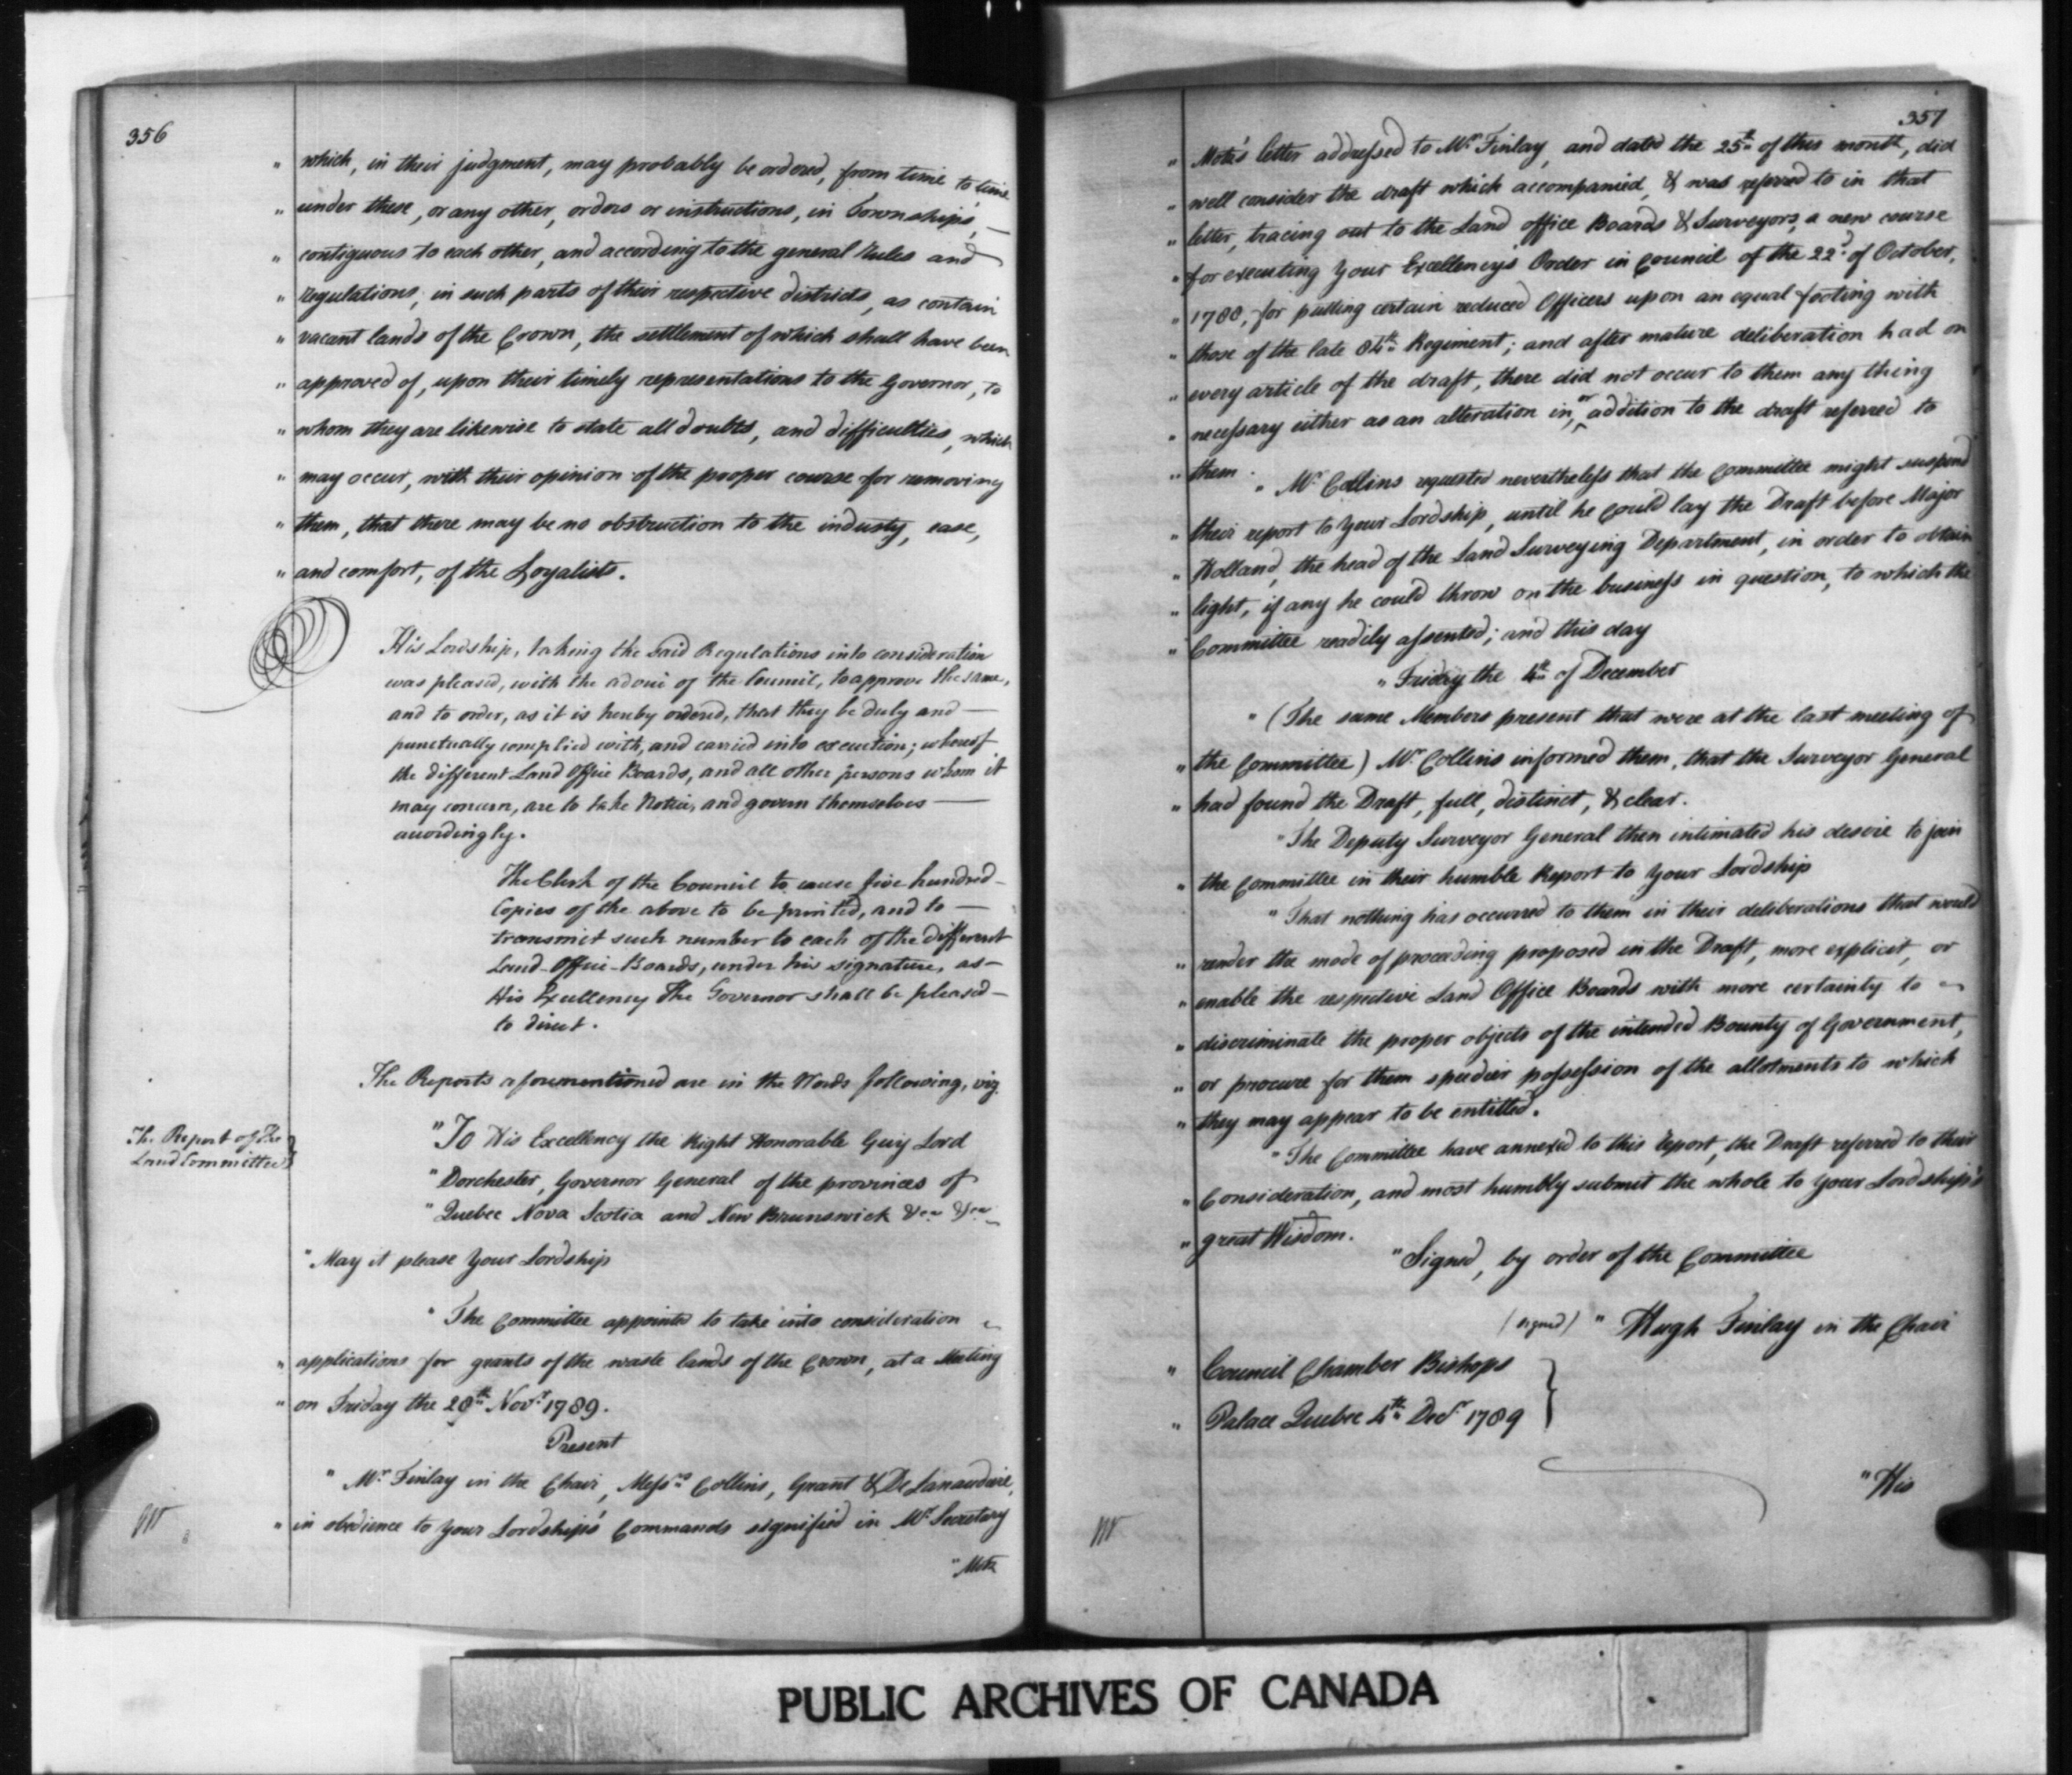 356
" which, in their judgment, may probably be ordered, from time to time
" under these, or any other, orders or instructions, in Townships, —
" contiguous to each other, and according to the general Rules and
" Regulations, in such parts of their respective districts, as contain
" vacant lands of the Crown, the settlement of which shall have been
" approved of, upon their timely representations to the Governor, to
" whom they are likewise to state all doubts, and difficulties, which
" may occur, with their opinion of the proper course for removing
" them, that there may be no obstruction to the industy, ease,
" and comfort, of the Loyalists.
His Lordship, taking the said Regulations into consideration
was pleased, with the advice of the Council, to approve the same,
and to order, as it is hereby ordered, that they be duly and —
punctually complied with, and carried into execution; whereof
the different Land Office Boards, and all other persons whom it
may concern, are to take Notice, and govern themselves —
accordingly.
The Clerk of the Council to cause five hundred —
Copies of the above to be printed, and to —
transmit such number to each of the different
Land-Office-Boards, under his signature, as —
His Excellency The Governor shall be pleased —
to direct.
The Reports aforementioned are in the Words following, viz.
The Report of the
Land Committee
" To His Excellency the Right Honorable Guy Lord
" Dorchester, Governor General of the provinces of
" Quebec Nova Scotia and New Brunswick &ca &ca
" May it please Your Lordship
" The Committee appointed to take into consideration
" applications for grants of the waste lands of the Crown, at a Meeting
" on Friday the 28th Novr 1789.
Present
" Mr Finlay in the Chair, Messrs Collins, Grant & De Lanaudiere,
" in obedience to Your Lordship's Commands signified in Mr Secretary
" Motz
357
" Motz's letter addressed to Mr Finlay, and dated the 25th of this month, did
" well consider the draft which accompanied, & was referred to in that
" letter, tracing out to the Land office Boards & Surveyors, a new course
" for executing Your Excellency's Order in Council of the 22d of October,
" 1788, for putting certain reduced Officers upon an equal footing with
" those of the late 84th Regiment; and after mature deliberation had on
" every article of the draft, there did not occur to them any thing
" necessary either as an alteration in, or addition to the draft referred to
" them.
" Mr Collins requested nevertheless that the Committee might suspend
" their report to Your Lordship, until he could lay the Draft before Major
" Holland, the head of the Land Surveying Department, in order to obtain
" light, if any he could throw on the business in question, to which the
" Committee readily assented; and this day
" Friday the 4th of December
" (The same Members present that were at the last meeting of
" the Committee) Mr Collins informed them, that the Surveyor General
" had found the Draft, full, distinct, & clear.
" The Deputy Surveyor General then intimated his desire to join
" the Committee in their humble Report to Your Lordship
" That nothing has occurred to them in their deliberations that would
" render the mode of proceeding proposed in the Draft, more explicit, or
" enable the respective Land Office Boards with more certainty to
" discriminate the proper objects of the intended Bounty of Government,
" or procure for them speedier possession of the allotments to which
" they may appear to be entitled.
" The Committee have annexed to this Report, the Draft referred to their
" Consideration, and most humbly submit the whole to Your Lordship's
" great Wisdom.
" Signed, by order of the Committee
(signed) " Hugh Finlay in the Chair
" Council Chamber Bishops
" Palace Quebec 4th Decr 1789
" His
PUBLIC ARCHIVES OF CANADA